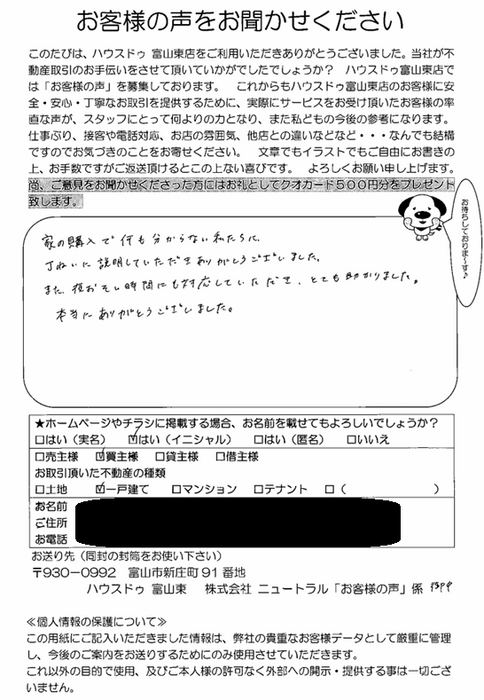 お客様の声をお聞かせください
このたびは、ハウスドゥ 富山東店をご利用いただきありがとうございました。当社が不
動産取引のお手伝いをさせて頂いていかがでしたでしょうか？　ハウスドゥ富山東店で
は「お客様の声」を募集しております。　これからもハウスドゥ富山東店のお客様に安
全・安心・丁寧なお取引を提供するために、実際にサービスをお受け頂いたお客様の率
直な声が、スタッフにとって何よりの力となり、また私どもの今後の参考になります。
仕事ぶり、接客や電話対応、お店の雰囲気、他店との違いなどなど・・・なんでも結構
ですのでお気づきのことをお寄せください。　文章でもイラストでもご自由にお書きの
上、お手数ですがご返送頂けるとこの上ない喜びです。　よろしくお願い申し上げます。
尚、ご意見をお聞かせくださった方にはお礼としてクオカード５００円分をプレゼント
致します。
お待ちしておりま～す♪
家の購入で何も分からない私たちに、
丁ねいに説明していただきありがとうございました。
また、夜おそい時間にも対応していただき、とても助かりました。
本当にありがとうございました。
★ホームページやチラシに掲載する場合、お名前を載せてもよろしいでしょうか？
□はい（実名）　☑はい（イニシャル）　□はい（匿名）　□いいえ
□売主様　☑買主様　□貸主様　□借主様
お取引頂いた不動産の種類
□土地　☑一戸建て　□マンション　□テナント　□（　　　　　）
お名前
ご住所
お電話
お送り先（同封の封筒をお使い下さい）
〒930-0992　富山市新庄町 91 番地
ハウスドゥ 富山東　株式会社 ニュートラル「お客様の声」係
≪個人情報の保護について≫
この用紙にご記入いただきました情報は、弊社の貴重なお客様データとして厳重に管理
し、今後のご案内をお送りするためにのみ使用させていただきます。
これ以外の目的で使用、及びご本人様の許可なく外部への開示・提供する事は一切ござ
いません。